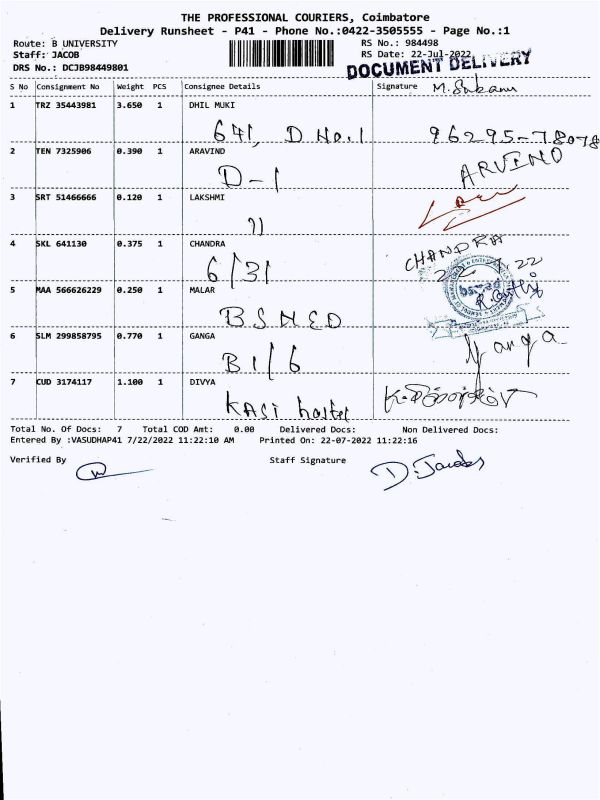 THE PROFESSIONAL COURIERS, Coimbatore
Delivery Runsheet - P41 - Phone No.:0422-3505555 - Page No.:1
Route: B UNIVERSITY RS No.: 984498
Staff: JACOB RS Date: 22-Jul-2022
DRS No.: DCJB98449801 DOCUMENT DELIVERY
S No Consignment No Weight PCS Consignee Details Signature
1 TRZ 35443981 3.650 1 DHIL MUKI
641, D No.1 96295-78078
2 TEN 7325906 0.390 1 ARAVIND ARVIND
D-1
3 SRT 51466666 0.120 1 LAKSHMI
11
4 SKL 641130 0.375 1 CHANDRA CHANDRA
6/31
5 MAA 566626229 0.250 1 MALAR
BSMED
6 SLM 299858795 0.770 1 GANGA Ganga
B1/6
7 CUD 3174117 1.100 1 DIVYA
KASI hostel
Total No. Of Docs: 7 Total COD Amt: 0.00 Delivered Docs: Non Delivered Docs:
Entered By :VASUDHAP41 7/22/2022 11:22:10 AM Printed On: 22-07-2022 11:22:16
Verified By Staff Signature
D. Jacob